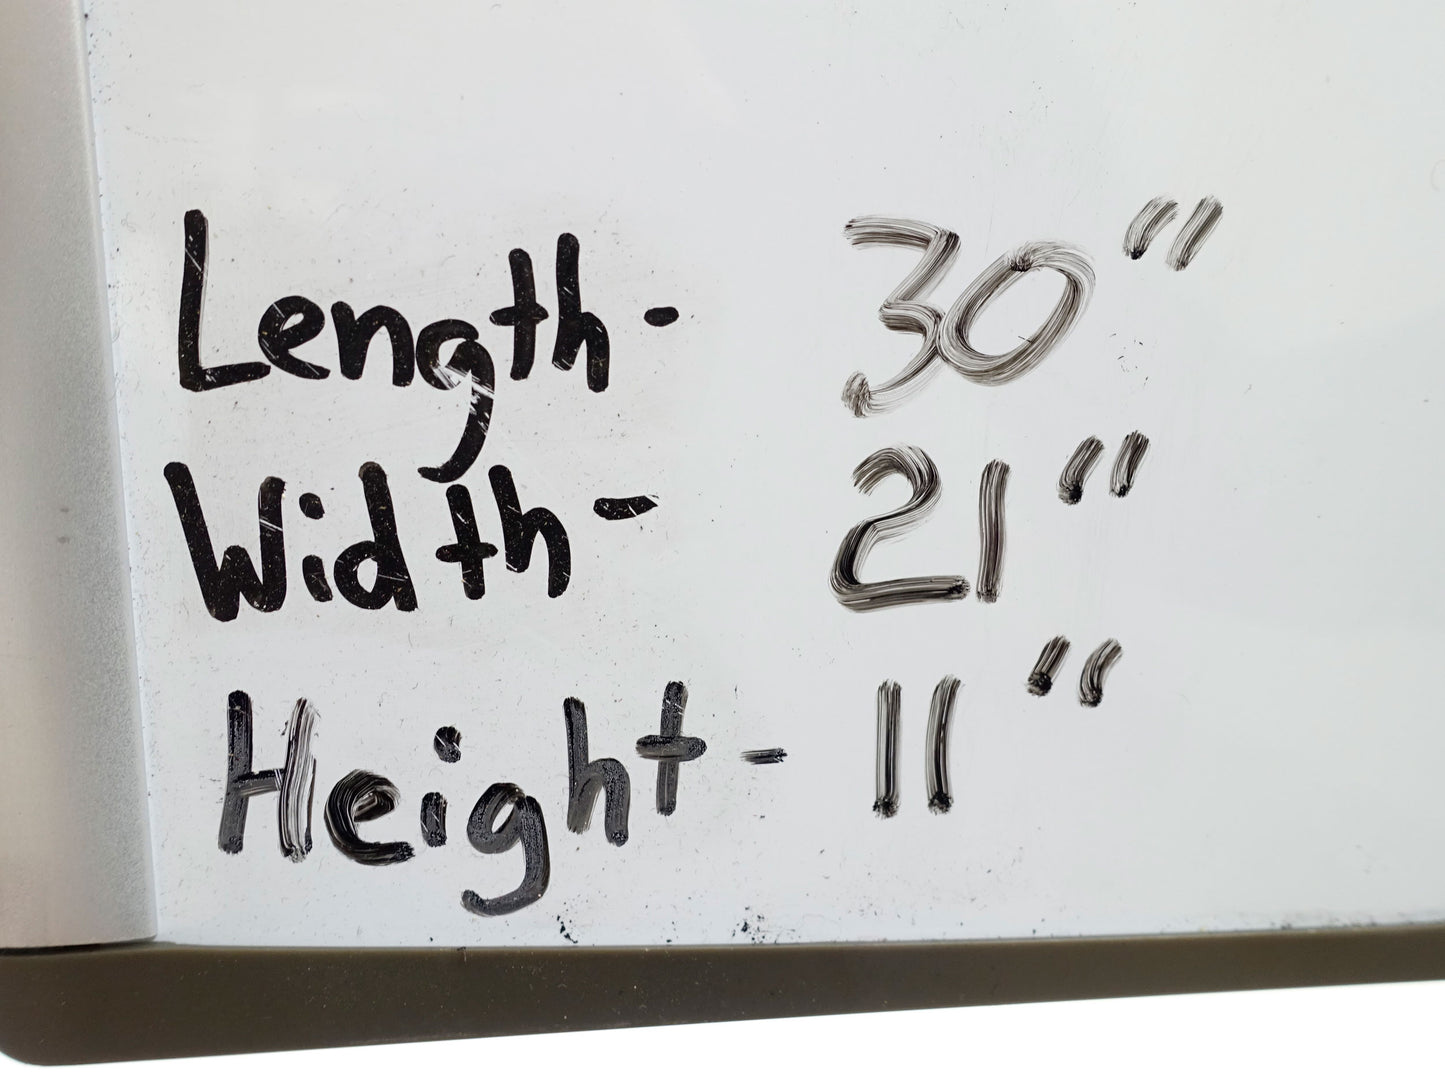 Length- 30"
Width- 21"
Height- 11"